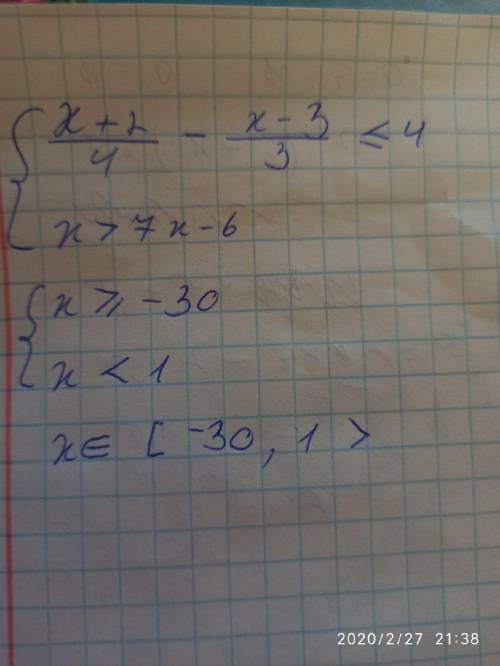 { x+2/4 - x-3/3 ≤ 4
x > 7x-6
{ x ≥ -30
x < 1
x ∈ [ -30, 1 >
2020/2/27 21:38